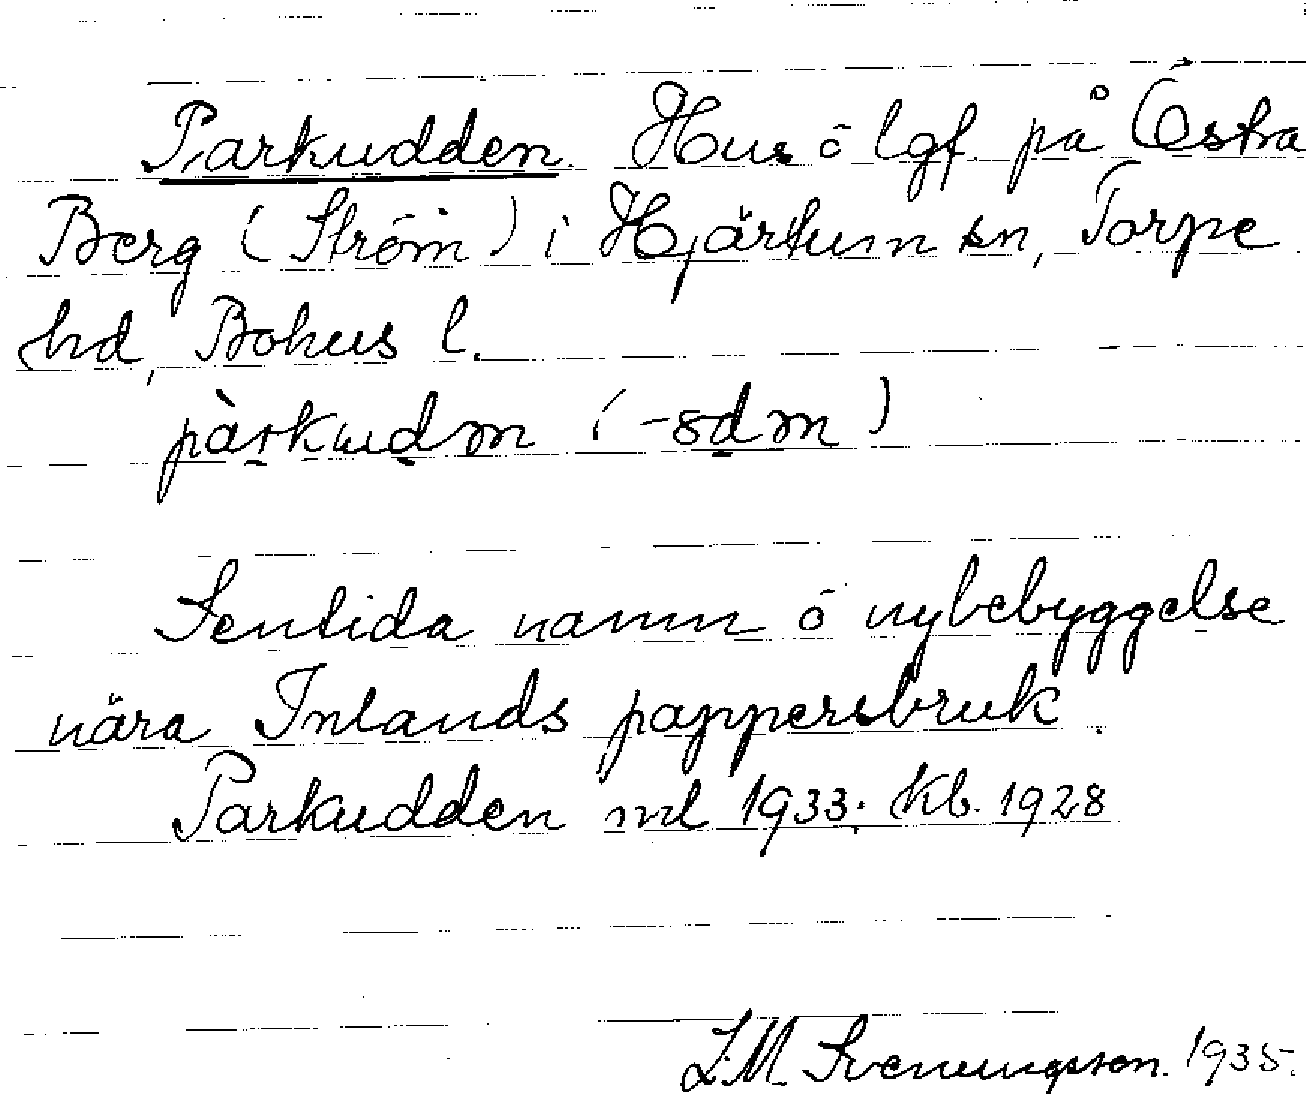 Parkudden. Hus o lgf. på Östra
Berg (Ström) i Hjärtum sn, Torpe
hd, Bohus l.
pàrkudm (-sdm)
Sentida namn o nybebyggelse
nära Inlands pappersbruk.
Parkudden ml 1933. Kb. 1928
L.M. Svenungsson. 1935.